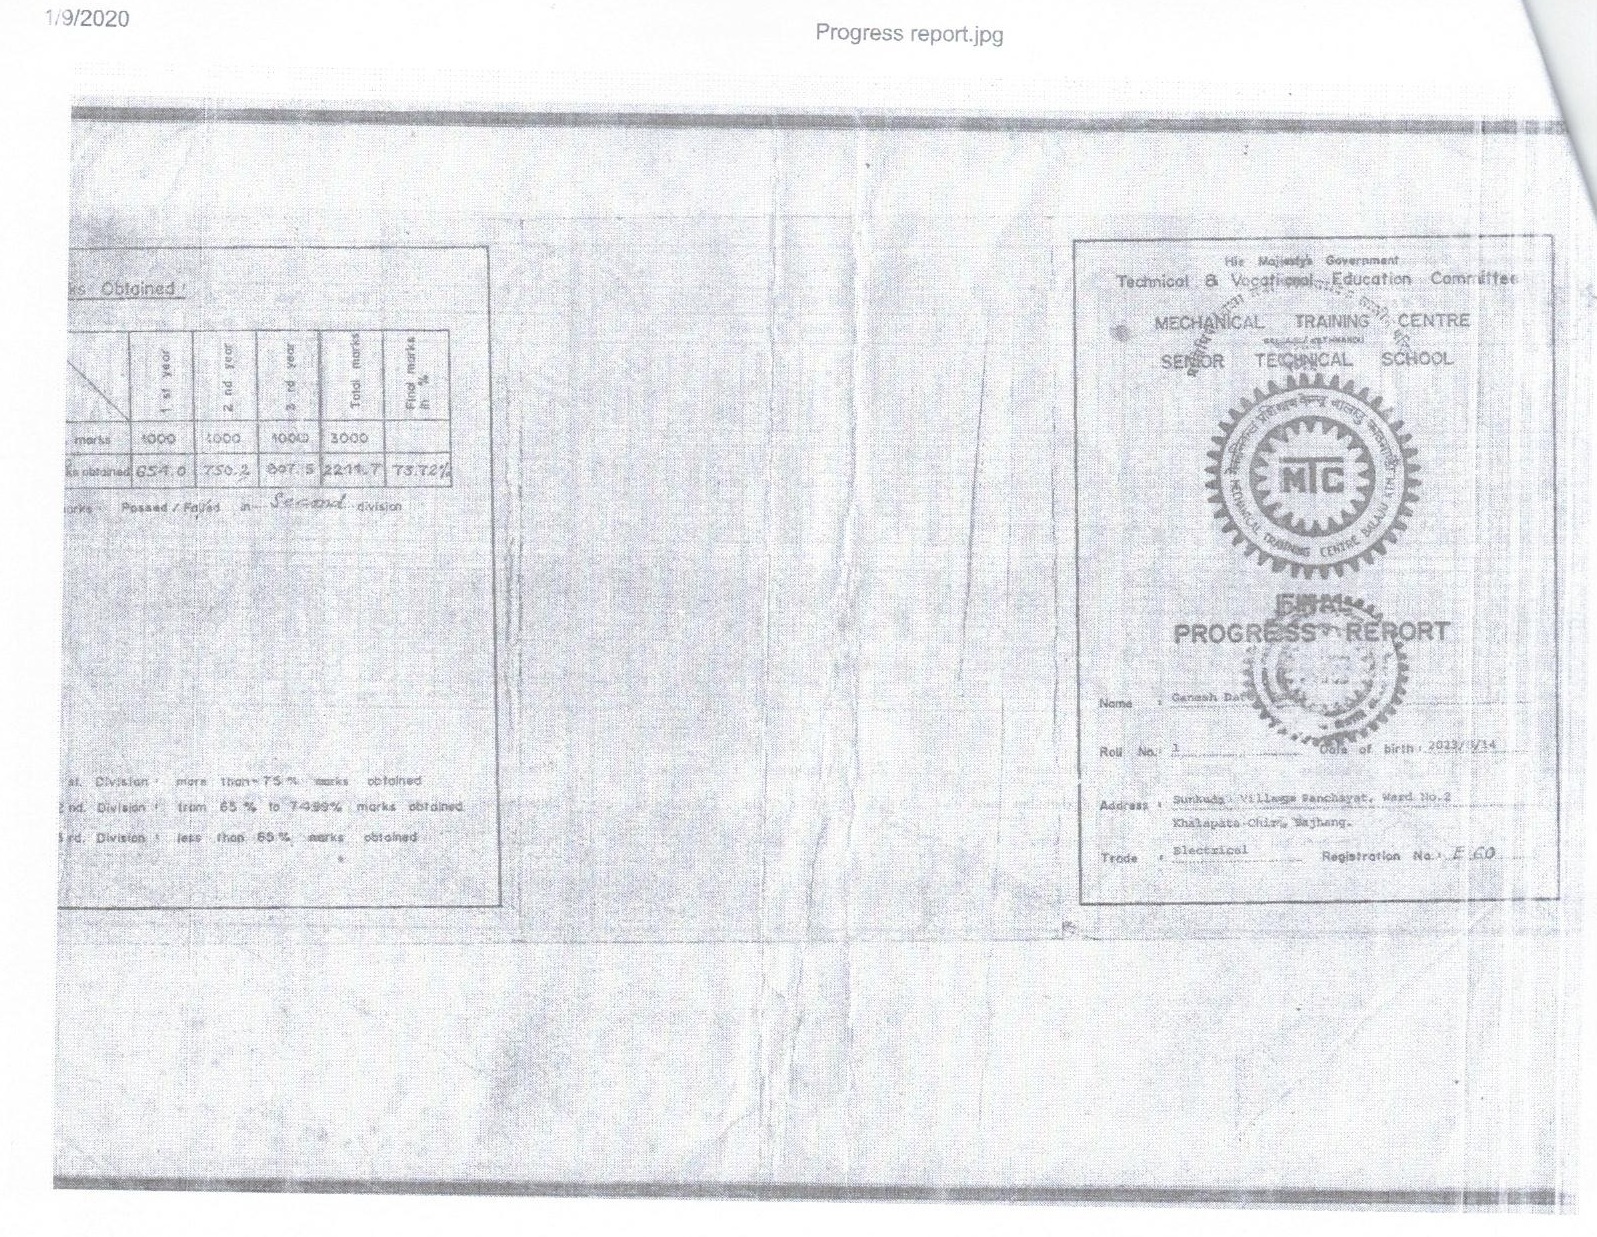 1/9/2020
Progress report.jpg
ks Obtained :
1 st year
2 nd year
3 rd year
Total marks
Final marks in %
marks 1000 1000 1000 3000
ks obtained 654.0 750.2 807.5 2211.7 73.72%
arks - Passed / Failed in Second division
st. Division : more than 75 % marks obtained
2 nd. Division : from 65 % to 74.99% marks obtained
3 rd. Division : less than 65 % marks obtained
His Majesty's Government
Technical & Vocational Education Committee
MECHANICAL TRAINING CENTRE
SENIOR TECHNICAL SCHOOL
MTC
MECHANICAL TRAINING CENTRE BALAJU KTM.
FINAL
PROGRESS REPORT
Name : Ganesh
Roll No.: 1 Date of birth : 2023/
Address : Sunkuda Village Panchayat, Ward No.2
Bajhang.
Trade : Electrical Registration No.: E 60